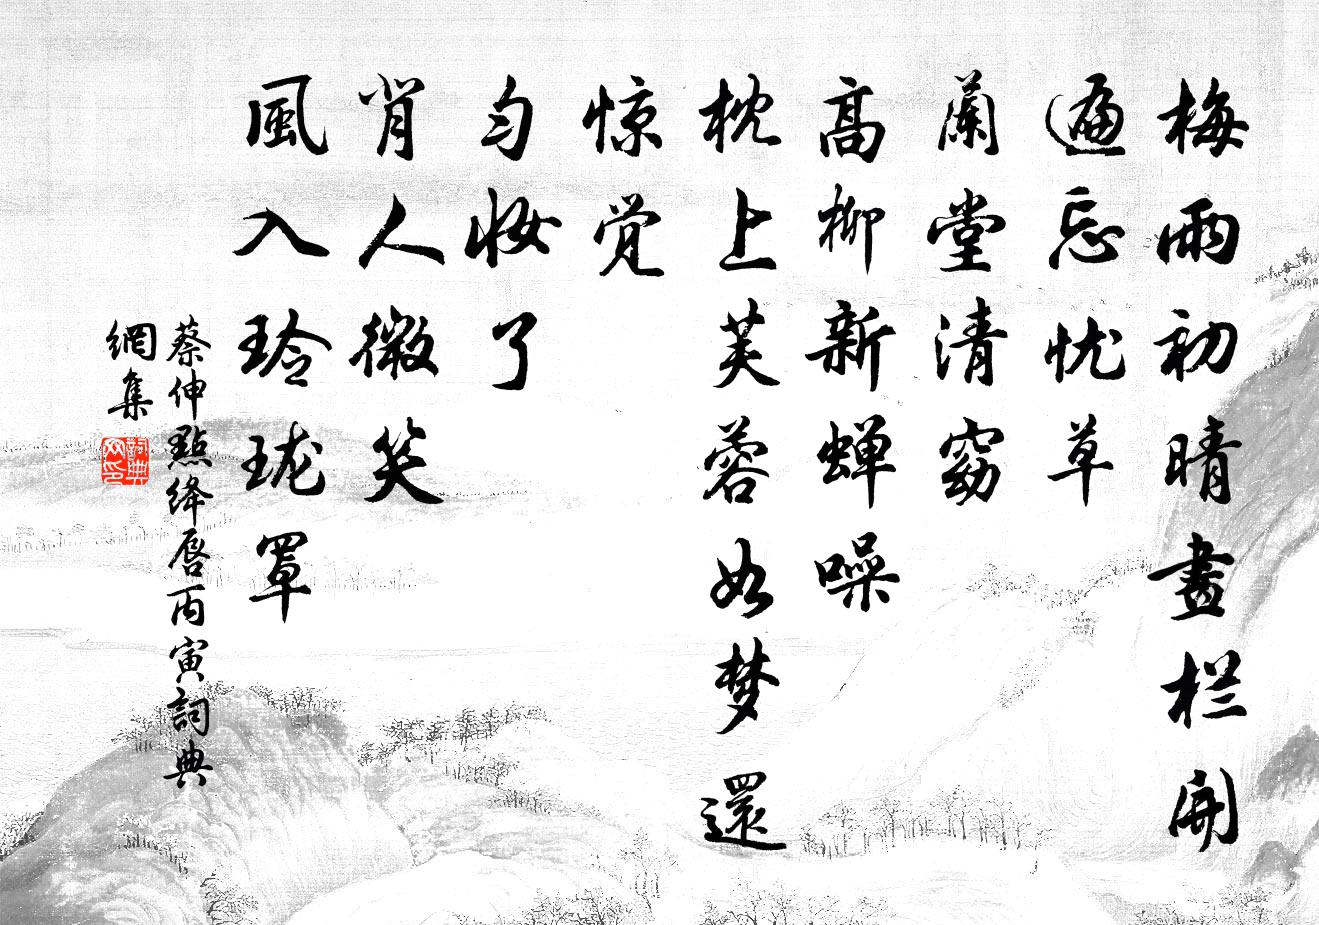 梅雨初晴畫栏開
遍忘忧草
蘭堂清窈
高柳新蝉噪
枕上芙蓉如梦還
惊觉
匀妆了
背人微笑
風入玲珑罩
蔡伸點绛唇丙寅詞典
網集
詞典